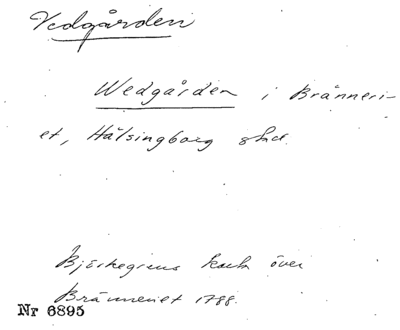 Vedgården
Wedgården i Bränneri-
et, Hälsingborg
Björkegrens karta över
Bränneriet 1788.
Nr 6895